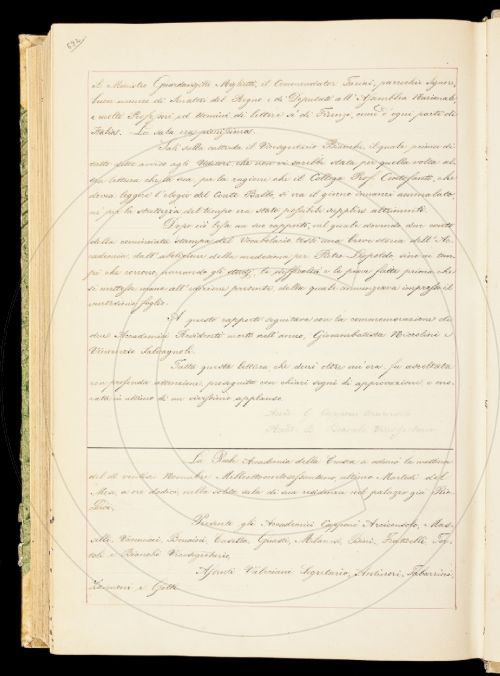 642
il Ministro Guardasigilli Miglietti, il Commendator Farini, parecchie Signore,
buon numero di Senatori del Regno e di Deputati all'Assemblea Nazionale,
e molti Professori ed uomini di lettere sì di Firenze, come d'ogni parte di
Italia. La sala era pienissima.
Salì sulla cattedra il Vicesegretario Bianchi, il quale prima di
tutto fece avviso agli Uditori che non vi sarebbe stata per quella volta al
tra lettura che la sua, per la ragione che il Collega Prof. Centofanti, che
dovea leggere l'elogio del Conte Balbo, si era il giorno innanzi ammalato
nè per la strettezza del tempo era stato possibile supplire altrimenti.
Dopo ciò lesse un suo rapporto, nel quale dovendo dar conto
della cominciata stampa del Vocabolario tessè una breve storia dell'Ac-
cademia, dall'abolizione della medesima per Pietro Leopoldo sino ai tem-
pi che corrono, narrando gli studj, le difficoltà e le prove fatte prima che
si mettesse mano all'edizione presente, della quale annunziava impresso il
foglio.
A questo rapporto seguitava con la commemorazione di
due Accademici Residenti morti nell'anno, Giovambatista Niccolini e
Vincenzio Salvagnoli.
Tutta questa lettura che durò oltre un'ora fu ascoltata
con profonda attenzione, proseguita con chiari segni di approvazione, e ono-
rata in ultimo di un vivissimo applauso.
G. Capponi Arciconsolo
B. Bianchi Vicesegretario
La Reale Accademia della Crusca si adunò la mattina
del dì ventisei Novembre Milleottocentosessantuno, ultimo Martedì del
Mese, a ore dodici, nella solita sala di sua residenza nel palazzo già Ric-
cardi.
Presenti gli Accademici Capponi Arciconsolo, Mas-
selli, Vannucci, Bonaini, Casella, Guasti, Milanesi, Bini, Fraticelli, Tor-
toli e Bianchi Vicesegretario.
Assenti Valeriani Segretario, Tabarrini,
e Gotti.